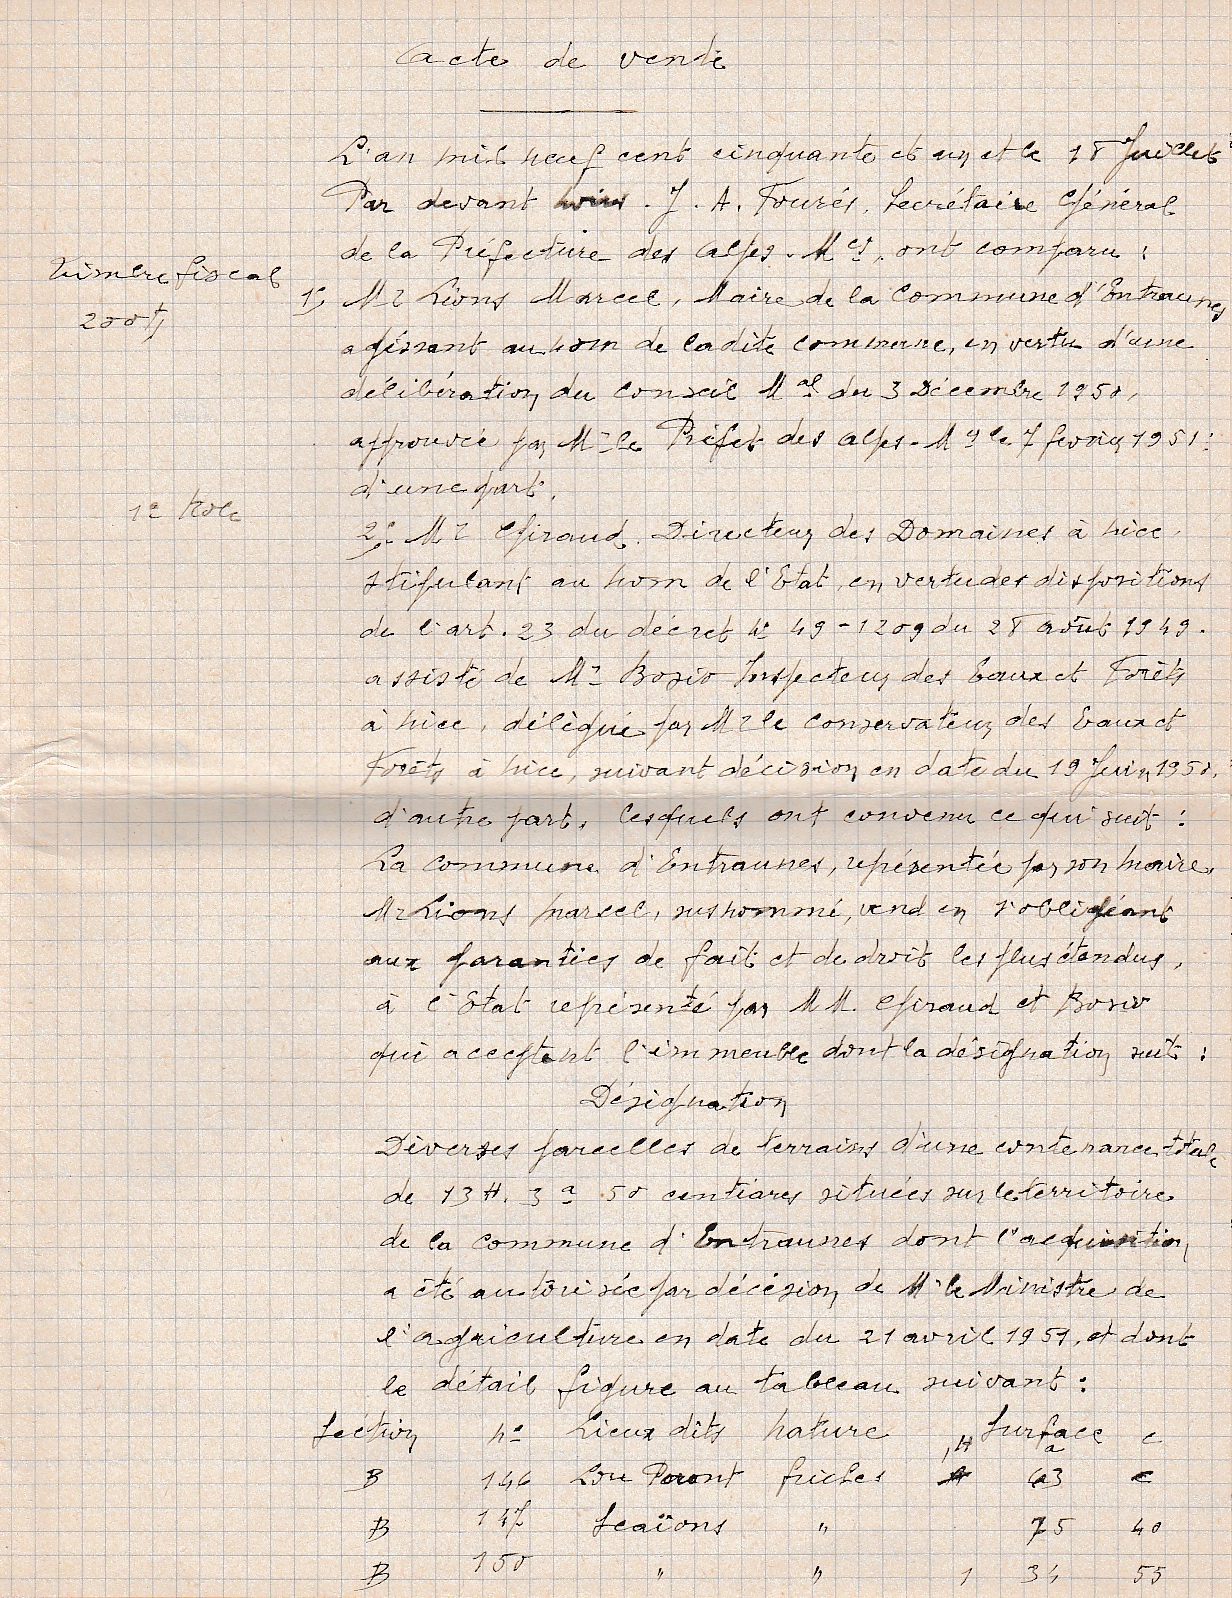 Acte de vente
L'an mil neuf cent cinquante et un et le 18 Juillet
Par devant nous. J. A. Fourés, Secrétaire Général
de la Préfecture des Alpes. Mes, ont comparu :
Timbre fiscal
200 f
1° Mr Lions Marcel, Maire de la Commune d'Entraunes
agissant au nom de ladite commune, en vertu d'une
délibération du Conseil Mal du 3 Décembre 1950,
approuvée par Mr le Préfet des Alpes-Mes le 7 février 1951 :
d'une part.
1er Role
2° Mr Giraud. Directeur des Domaines à Nice,
stipulant au nom de l'Etat, en vertu des dispositions
de l'art. 23 du décret n° 49-1209 du 28 août 1949.
assisté de Mr Bosio Inspecteur des Eaux et Forêts
à Nice, délégué par Mr le conservateur des Eaux et
Forêts à Nice, suivant décision en date du 19 Juin 1950,
d'autre part, lesquels ont convenu ce qui suit :
La commune d'Entraunes, représentée par son maire,
Mr Lions Marcel, susnommé, vend en s'obligeant
aux garanties de fait et de droit les plus étendus,
à l'Etat représenté par MM. Giraud et Bosio
qui acceptent l'immeuble dont la désignation suit :
Désignation
Diverses parcelles de terrains d'une contenance totale
de 13 H. 3 a 50 centiares situées sur le territoire
de la commune d'Entraunes dont l'acquisition
a été autorisée par décision de Mr le Ministre de
l'agriculture en date du 21 avril 1951, et dont
le détail figure au tableau suivant :
Section n° Lieux dits Nature Surface
H a c
B 146 Lou Pount friches 63
B 147 Scaïons " 75 40
B 150 " " 1 34 55